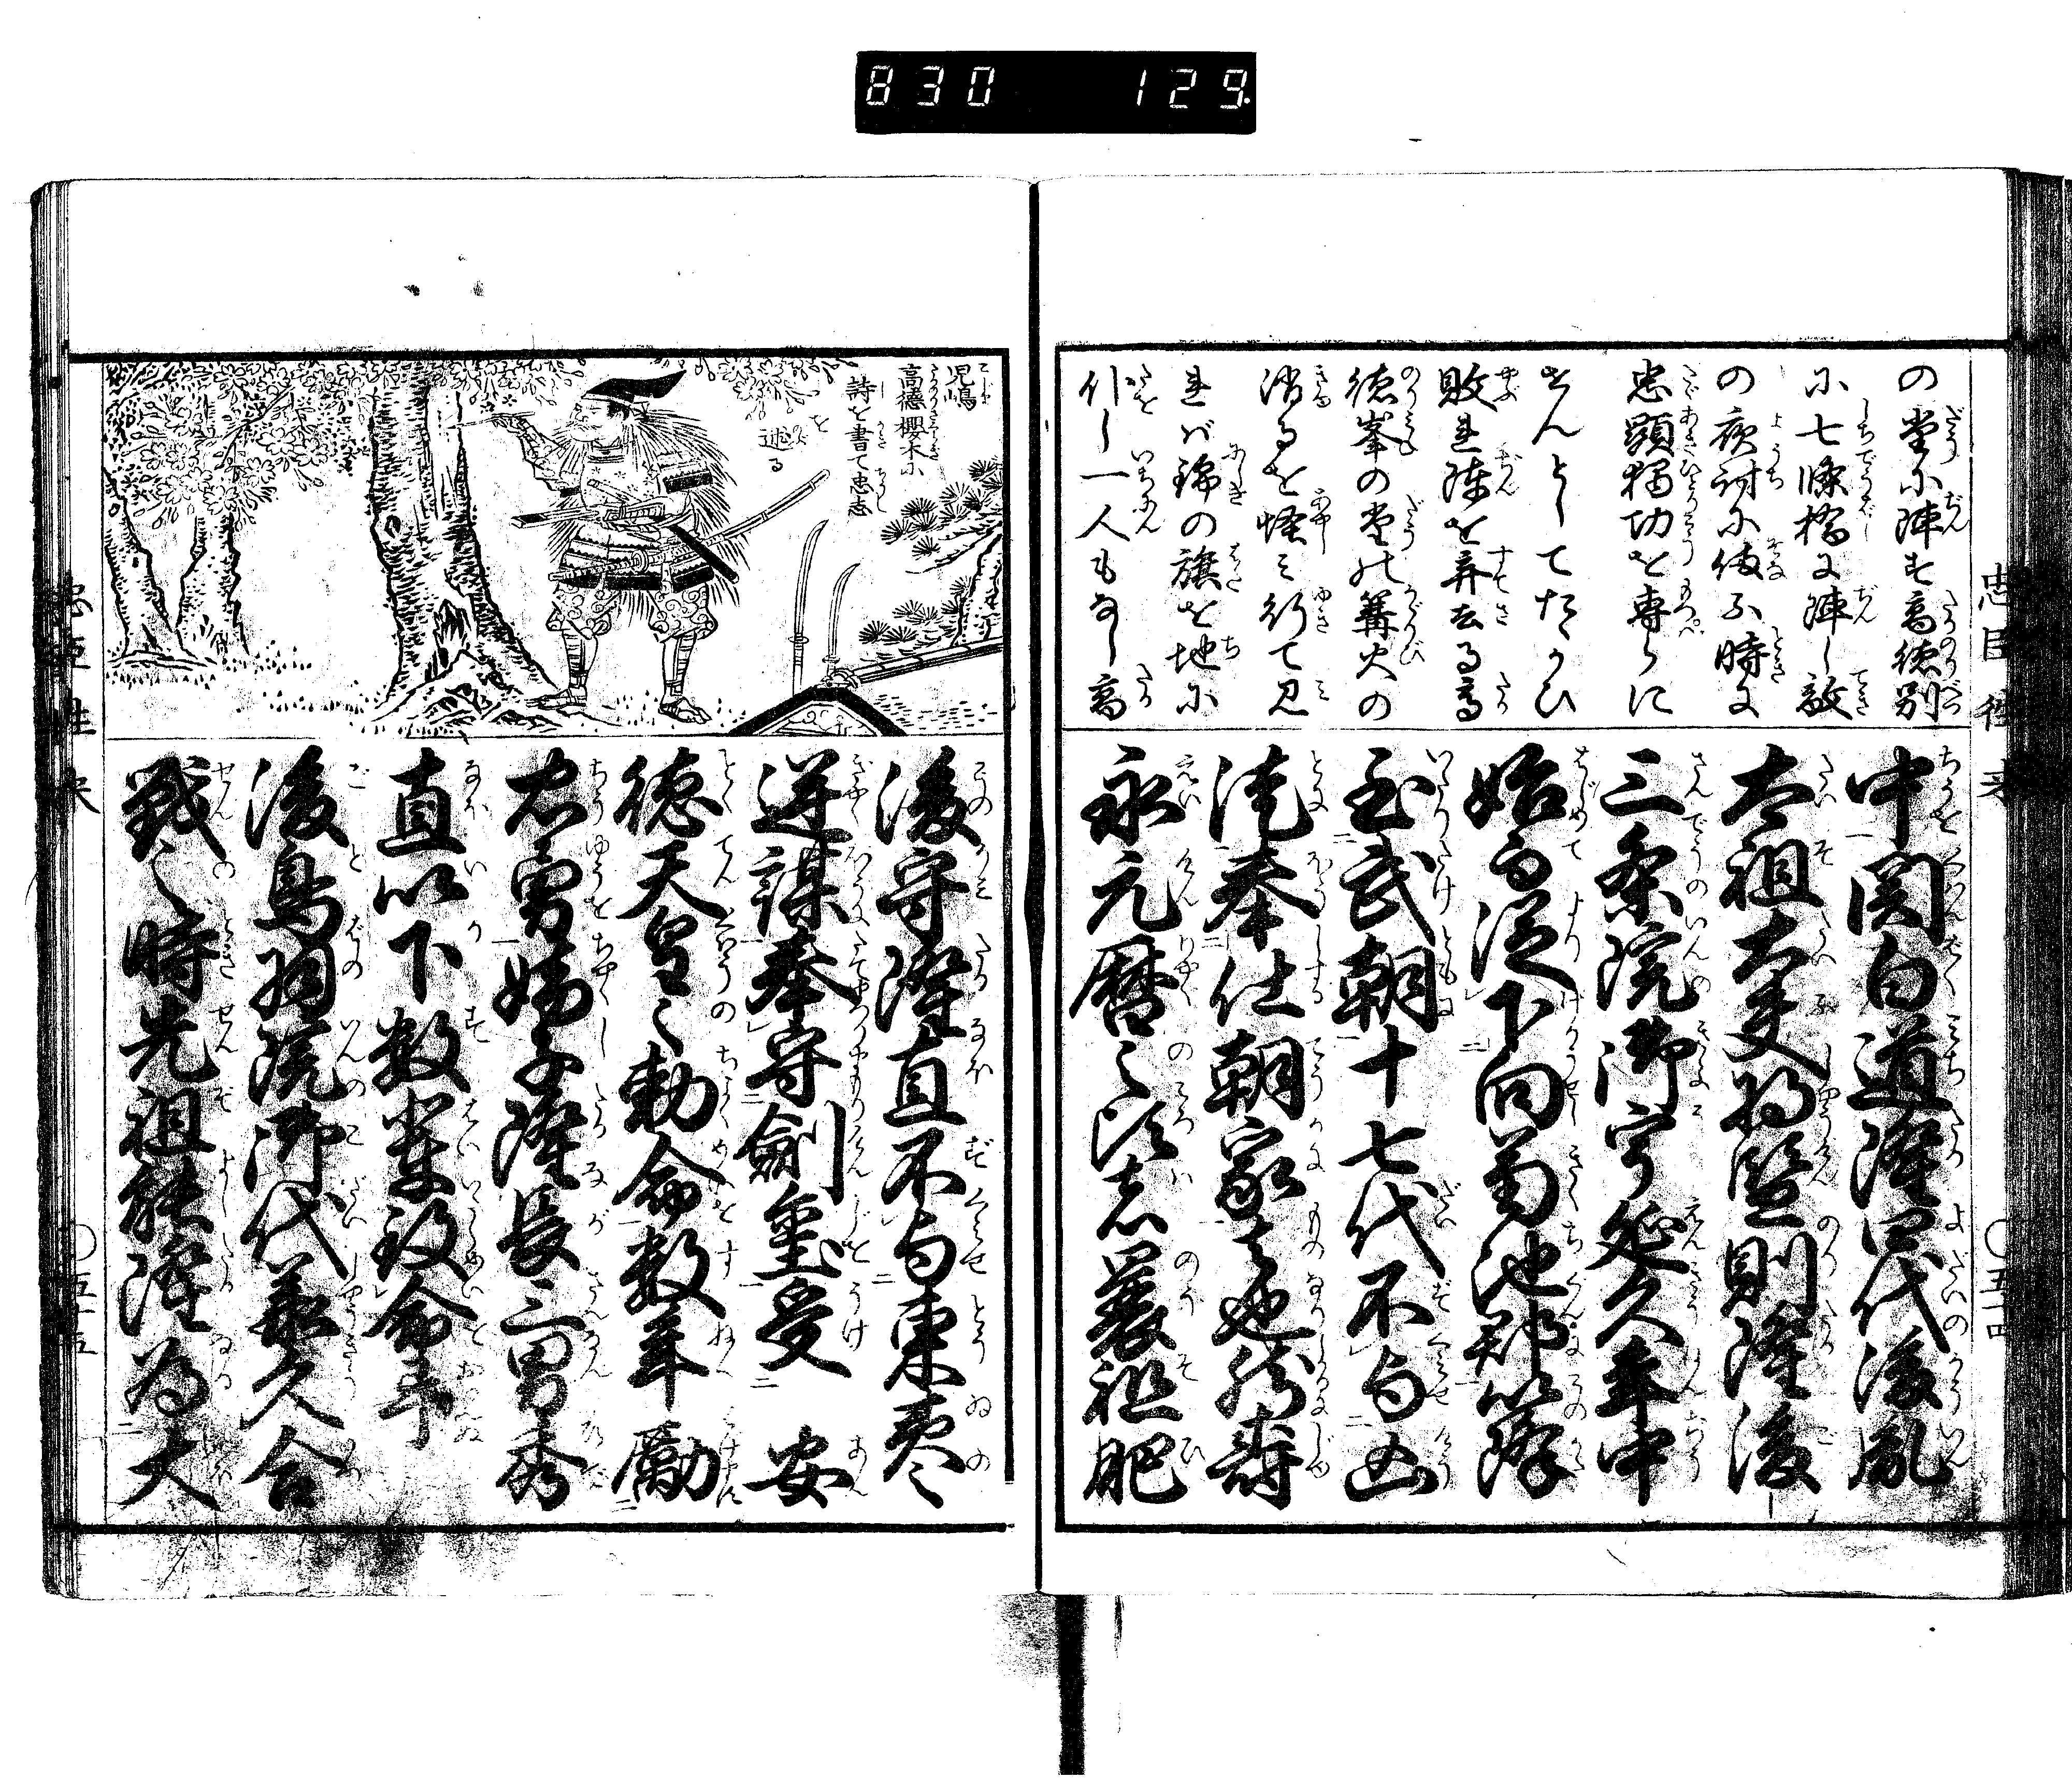 830 129
の堂に陣す高徳別
に七條橋に陣し敵
の夜討に備ふ時に
忠顕独功を専らに
せんとしてたゝかひ
敗れ陣を弃去る高
徳峯の堂の篝火の
消るを怪み行て見
れば錦の旗を地に
一人もなし高
中関白道隆四代後胤
太祖大夫将監則隆後
三条院御宇延久年中
始而従下向菊池郡以降
至武朝十七代不与凶
徒奉仕朝家者也然寿
永元暦之頃者曩祖肥
忠臣往来
〇五十四
児嶋
高徳櫻木に
詩を書て忠志
を
述る
後守隆直不与東夷之
逆謀奉守劔璽受安
徳天皇之勅命数年励
忠勇嫡子隆長三男秀
直以下数輩致命畢
後鳥羽院御代承久合
戦之時先祖能隆為大
〇五十五